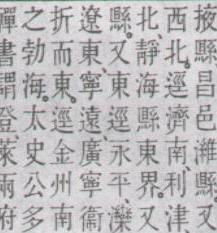 掖縣昌邑濰縣又
西北。逕濟南利津
北靜海縣東界。又
縣。又東逕永平灤
遼東寧遠廣寧衞
折而東。逕金州南
之勃海。太史公多
禪書謂登萊兩府